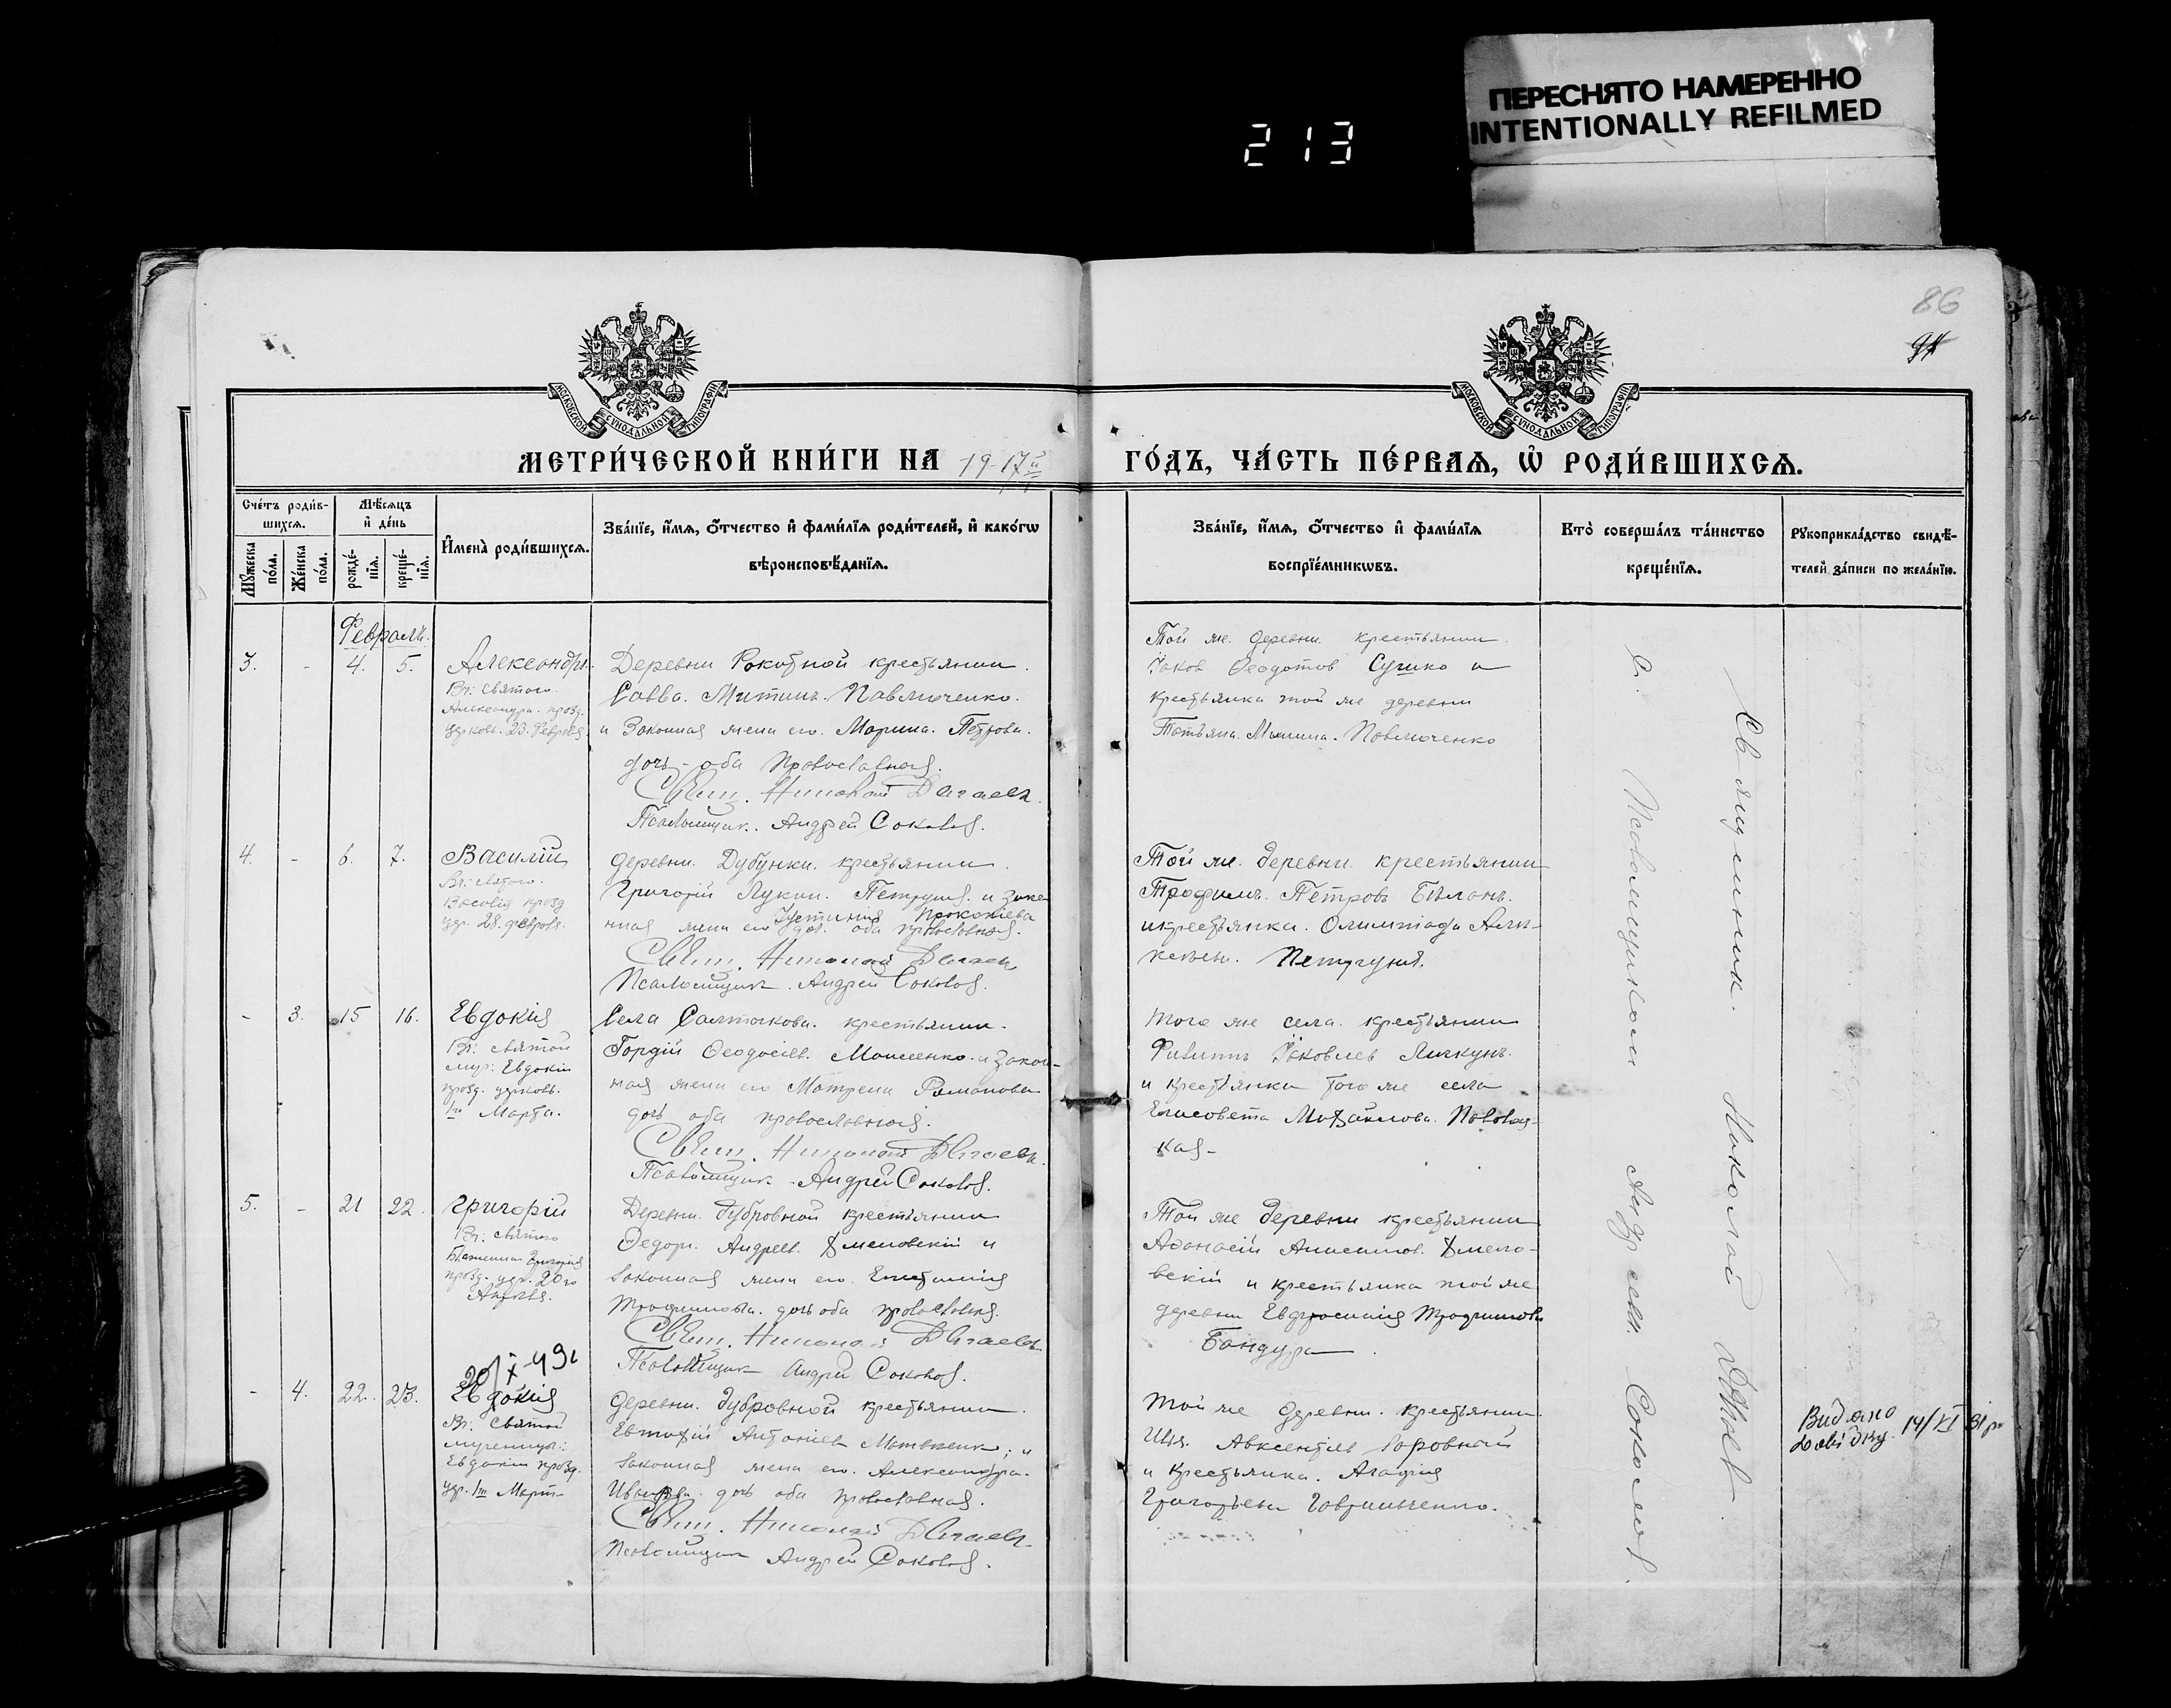 ПЕРЕСНЯТО НАМЕРЕННО
INTENTIONALLY REFILMED
213
86
МОСКОВСКОЙ СУНОДАЛЬНОЙ ТИПОГРАФІИ
МОСКОВСКОЙ СУНОДАЛЬНОЙ ТИПОГРАФІИ
МЕТРИ́ЧЕСКОЙ КНИ́ГИ НА 1917й ГО́ДЪ, ЧА́СТЬ ПЕ́РВАЯ, Ѽ РОДИ́ВШИХСЯ.
Сче́тъ роди́в-
шихся.
Мѣ́сяцъ
и҆ де́нь
Мꙋ́жеска
по́ла.
Же́нска
по́ла.
рожде́-
нїя.
креще́-
нїя.
И҆мена̀ роди́вшихся.
Зва́нїе, и҆́мя, ѻ҆́тчество и҆ фами́лїя роди́телей, и҆ како́гѡ
вѣроисповѣ́данїя.
Зва́нїе, и҆́мя, ѻ҆́тчество и҆ фами́лїя
воспрїе́мникѡвъ.
Кто̀ соверша́лъ та́инство
креще́нїя.
Рꙋкоприкла́дство свидѣ́-
телей за́писи по жела́нїю.
Февраль.
3. - 4. 5. Александръ
Вч: святого
Александра. празд.
церковь. 23. Февраля.
Деревни Рокитной крестьянин.
Савва. Митинъ. Павлюченко.
и Законная жена его. Марина. Петрова.
дочь - оба Православныя.
Свящ. Николай
Псаломщик. Андрей Соколов.
Той же. деревни. крестьянин.
Іаков Феодотов Сушко и
крестьянка той же деревни
Татьяна. Павлюченко
4. - 6. 7. Василій
Вч: святого.
Василія празд
цер. 28. февраля.
Деревни. Дубунки. крестьянин.
Григорій Лукин. Петруня. и закон
ная жена его Іустинія Прокопіева
доч. оба православныя.
Свящ. Николай
Псаломщик. Андрей Соколов.
Той же. деревни. крестьянин
Трофимъ. Петровъ Бѣланъ.
и крестьянка. Олимпіада
Петруня.
- 3. 15 16. Евдокія
Вч: святой
муч: Евдокіи
празд. церковь.
1го Марта.
Села Салтыкова. крестьянин.
Гордій Феодосіев. Моисеенко. и закон-
ная жена его Матрена Романова
дочь оба православныя.
Свящ. Николай
Псаломщик - Андрей Соколов.
того же села. крестьянин
Филиппъ Іаковлев Личкунъ.
и крестьянка того же села
Елисавета Михайлова.
кая-
5. - 21 22. Григорій
Вч: святого
Блаженна Григорія
празд. цер. 20го
Апрѣля.
Деревни. Дубровной крестьянин
Федоръ. Андреев. Хмеловскій и
законная жена его.
Трофимова. дочь оба православныя.
Свящ. Николай
Псаломщик Андрей Соколов.
Той же деревни крестьянин
Афанасій Анисимов. Хмело-
вскій и крестьянка той же
деревни Евфросинія Трофимова
Бандура.
- 4. 22. 23. Евдокія
Вч: Святой
мученицы:
Евдокіи празд.
цер. 1го Март-
деревни. Дубровной крестьянин.
Евтихій Антоніев Матвіенко; и
законная жена его. Александра.
Иванова. дочь оба православныя.
Свящ. Николай
Псаломщик Андрей Соколов.
Той же деревни. крестьянин.
Авксентіев
и Крестьянка. Агафія
Григорьева Гавриленко.
Священник. Николай
Съ. Псаломщиком Андреем Соколов.
Видано
14/VI 31р